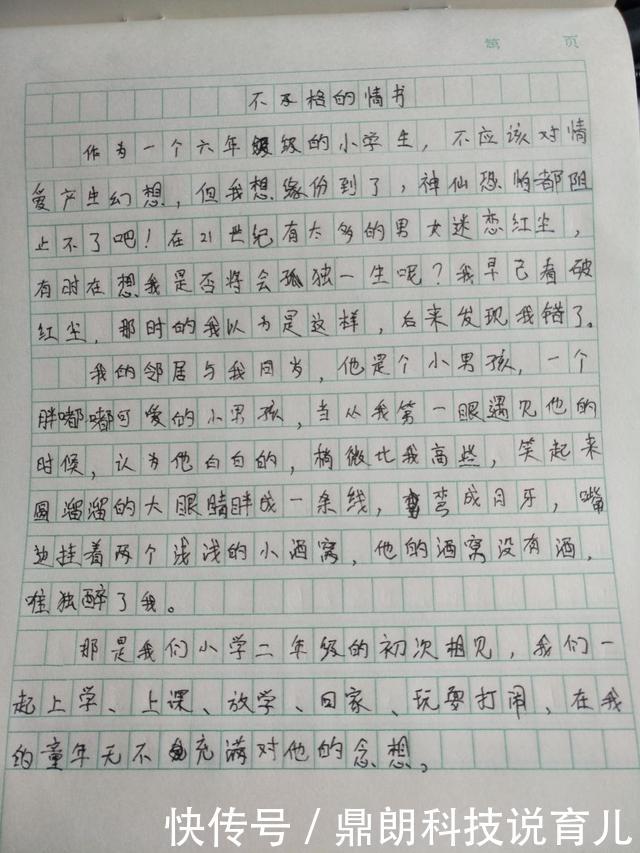 第 页
不及格的情书
作为一个六年级的小学生，不应该对情
爱产生幻想，但我想缘份到了，神仙恐怕都阻
止不了吧！在21世纪有太多的男女迷恋红尘，
有时在想我是否将会孤独一生呢？我早已看破
红尘，那时的我以为是这样，后来发现我错了。
我的邻居与我同岁，他是个小男孩，一个
胖嘟嘟可爱的小男孩，当从我第一眼遇见他的
时候，认为他白白的，稍微比我高些，笑起来
圆溜溜的大眼睛胖成一条线，弯弯成月牙，嘴
边挂着两个浅浅的小酒窝，他的酒窝没有酒，
唯独醉了我。
那是我们小学二年级的初次相见，我们一
起上学、上课、放学、回家、玩耍打闹，在我
的童年无不充满对他的念想。
快传号 / 鼎朗科技说育儿